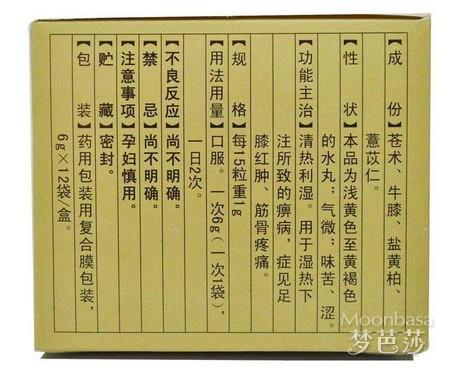 成份 苍术、牛膝、盐黄柏、
薏苡仁。
性状 本品为浅黄色至黄褐色
的水丸；气微；味苦、涩。
功能主治 清热利湿。用于湿热下
注所致的痹病，症见足
膝红肿、筋骨疼痛。
规格 每15粒重1g
用法用量 口服。一次6g（一次1袋），
一日2次。
不良反应 尚不明确。
禁忌 尚不明确。
注意事项 孕妇慎用。
贮藏 密封。
包装 药用包装用复合膜包装，
6g×12袋/盒。
Moonbasa
梦芭莎